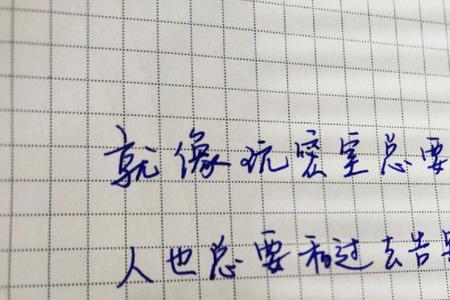 就像玩密室总要
人也总要和过去告别